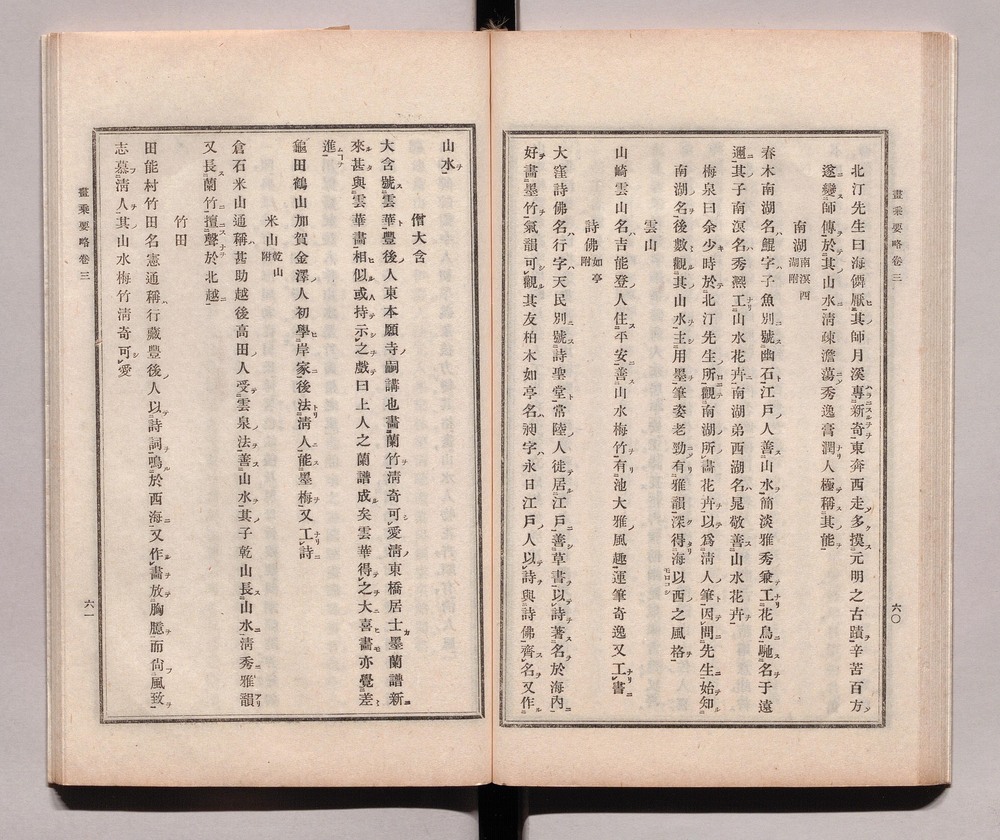 畫乘要略卷三
六〇
北汀先生曰海僲厭其師月溪專新奇東奔西走多摸元明之古蹟辛苦百方
遂變師傳於其山水清疎澹蕩秀逸膏潤人極稱其能
南湖 南溟西湖附
春木南湖名鯤字子魚別號幽石江戸人善山水簡淡雅秀兼工花鳥馳名于遠
邇其子南溟名秀熈工山水花卉南湖弟西湖名晁敬善山水花卉
梅泉曰余少時於北汀先生所觀南湖所畵花卉以爲清人筆因問先生始知
南湖名後數觀其山水主用墨筆姿老勁有雅韻深得海以西之風格
雲山
山崎雲山名吉能登人住平安善山水梅竹有池大雅風趣運筆奇逸又工書
詩佛 如亭附
大窪詩佛名行字天民別號詩聖堂常陸人徙居江戸善草書以詩著名於海內
好畵墨竹氣韻可觀其友柏木如亭名昶字永日江戸人以詩與詩佛齊名又作
山水
僧大含
大含號雲華豐後人東本願寺嗣講也畵蘭竹清奇可愛清東橋居士墨蘭譜新
來甚與雲華畵相似或持示之戲曰上人之蘭譜成矣雲華得之大喜畵亦覺差
進
龜田鶴山加賀金澤人初學岸家後法清人能墨梅又工詩
米山 乾山附
倉石米山通稱甚助越後高田人受雲泉法善山水其子乾山長山水清秀雅韻
又長蘭竹擅聲於北越
竹田
田能村竹田名憲通稱行藏豐後人以詩詞鳴於西海又作畵放胸臆而尙風致
志慕清人其山水梅竹清奇可愛
畫乘要略卷三
六一